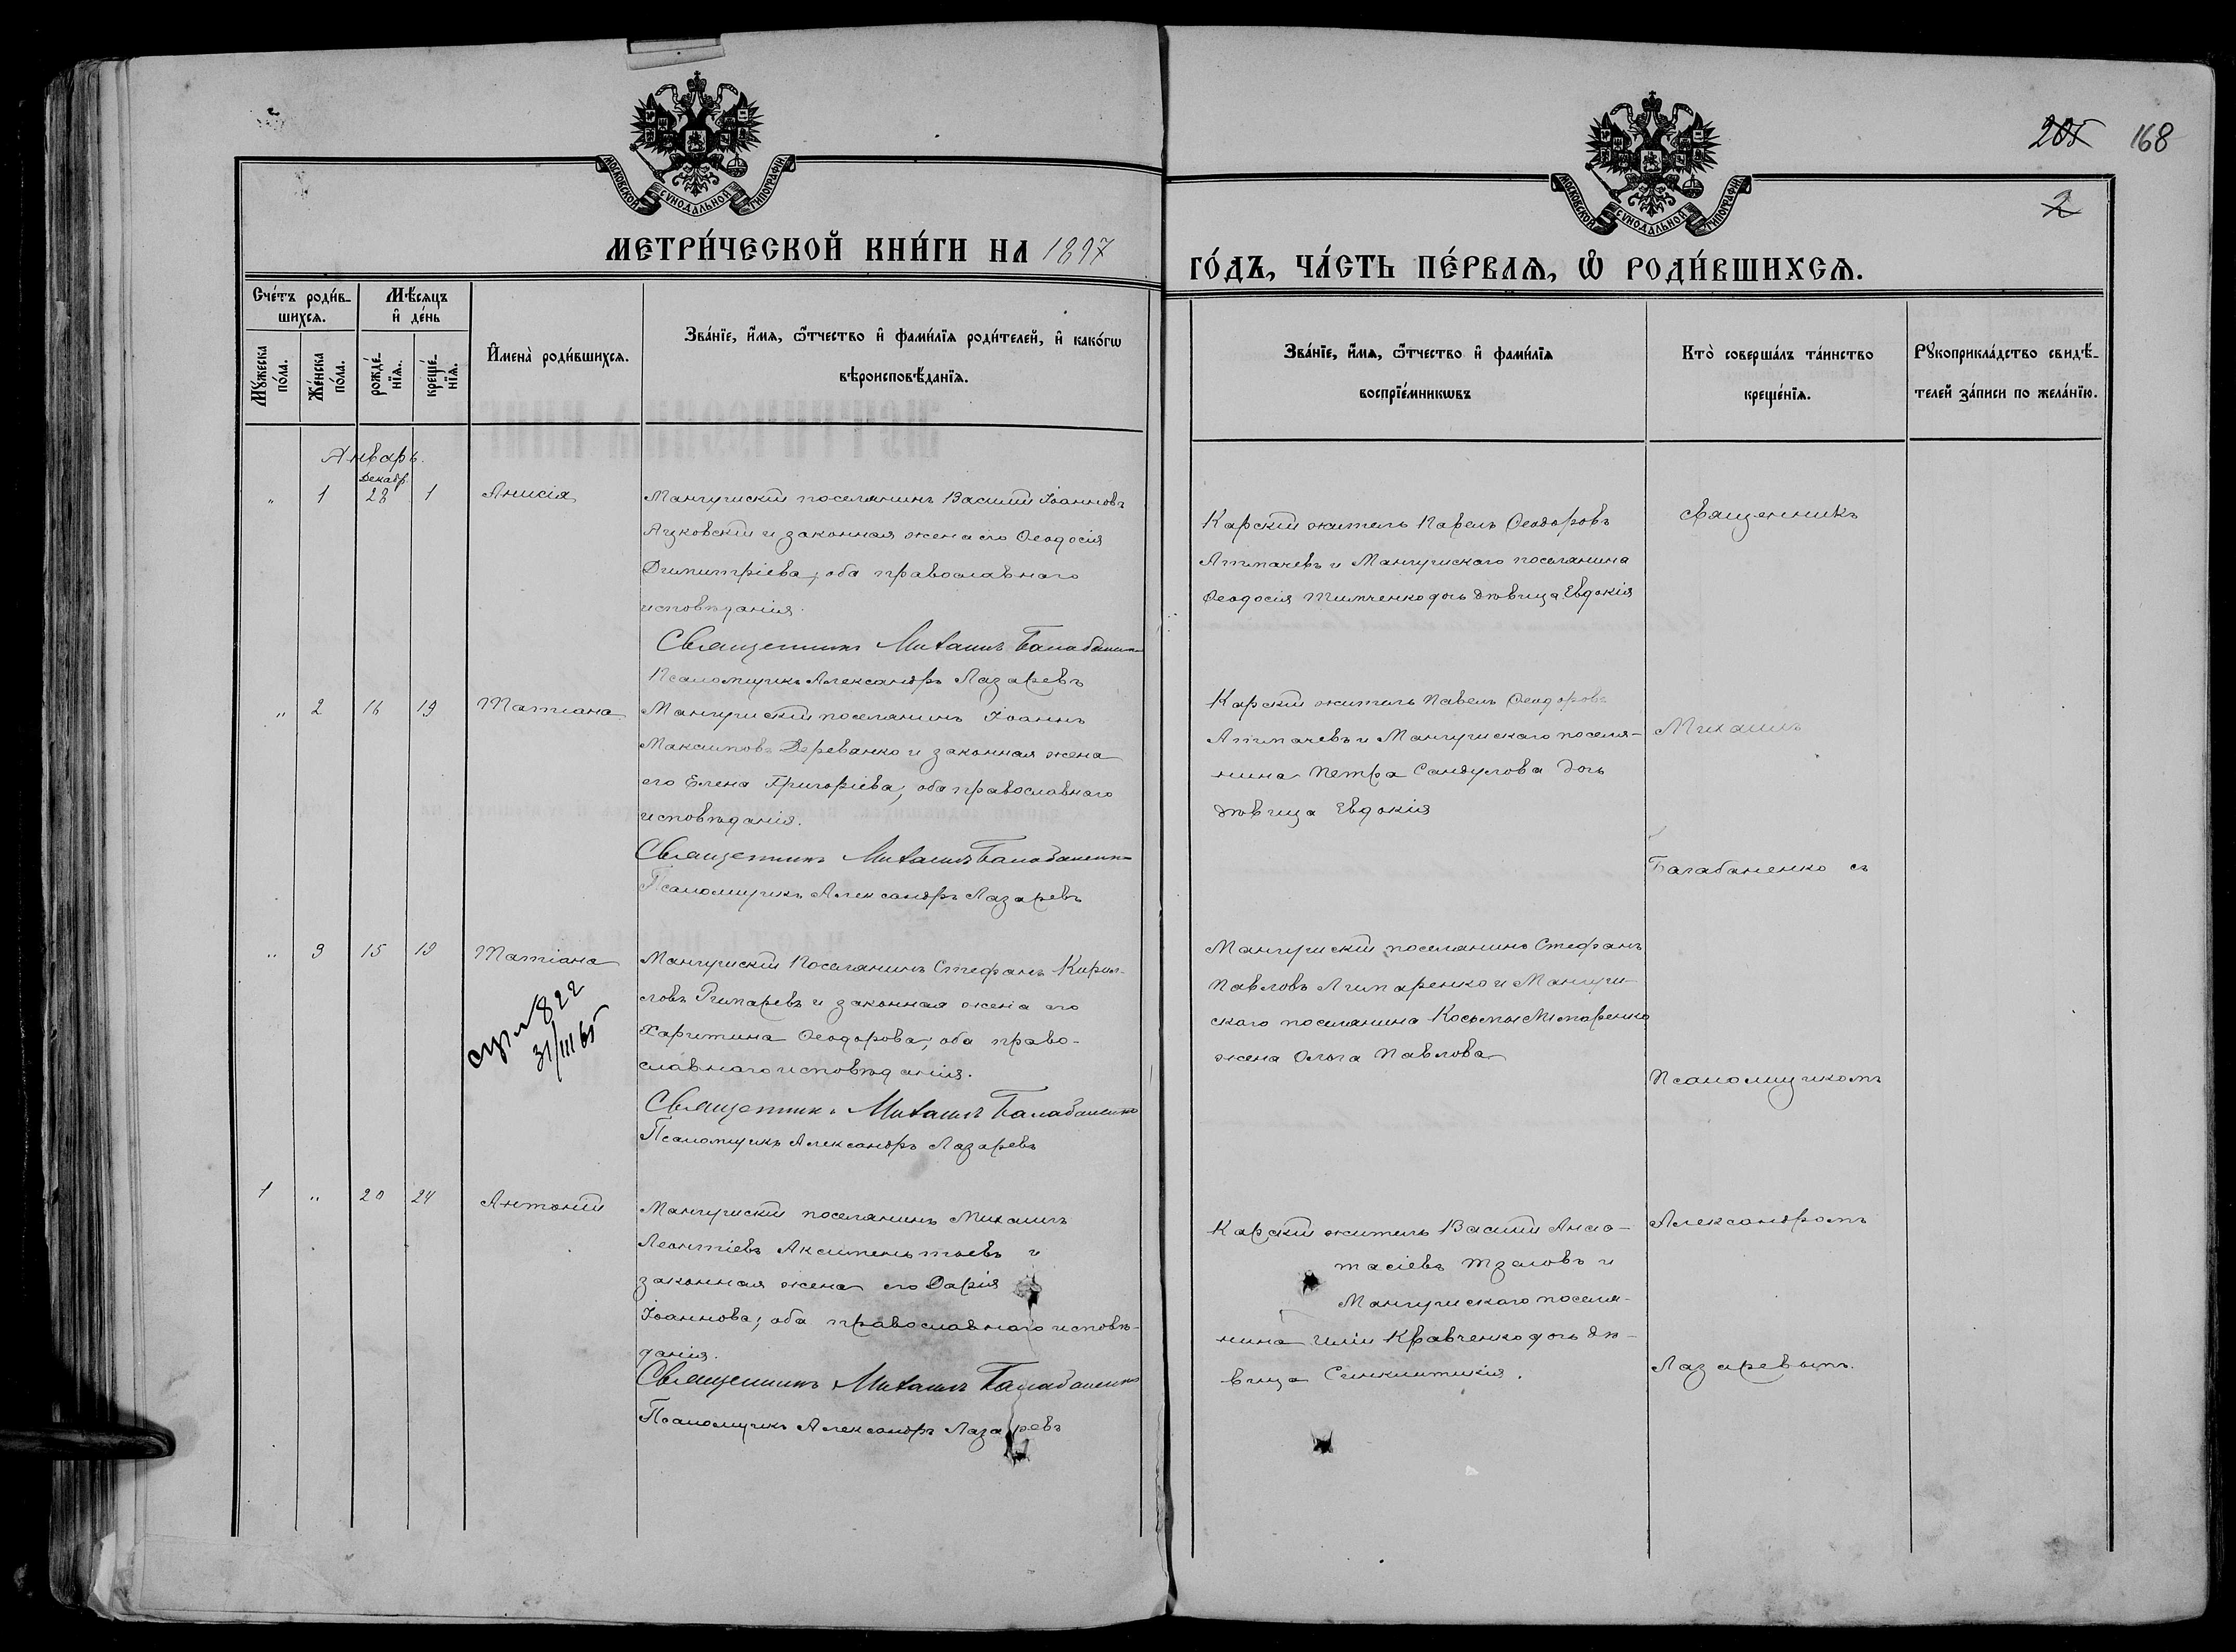 205 168
2
МОСКОВСКОЙ СѴНОДАЛЬНОЙ ТИПОГРАФІИ
МОСКОВСКОЙ СѴНОДАЛЬНОЙ ТИПОГРАФІИ
МЕТРИ́ЧЕСКОЙ КНИ́ГИ НА 1897
ГО́ДЪ, ЧА́СТЬ ПЕ́РВАЯ, Ѡ҆ РОДИ́ВШИХСЯ.
Сче́тъ роди́в-
шихся.
Мꙋ́жеска
по́ла.
Же́нска
по́ла.
Мѣ́сяцъ
и҆ де́нь
рожде́-
нїя.
креще́-
нїя.
И҆мена̀ роди́вшихся.
Зва́нїе, и҆́мя, ѻ҆́тчество и҆ фами́лїя роди́телей, и҆ како́гѡ
вѣроисповѣ́данїя.
Зва́нїе, и҆́мя, ѻ҆́тчество и҆ фами́лїя
воспрїе́мникѡвъ
Кто̀ соверша́лъ та́инство
креще́нїя.
Рꙋкоприкла́дство свидѣ́-
телей за́писи по жела́нїю.
Январь.
Декабр.
" 1 28 1 Анисія
Мангушскій поселянинъ Василій Іоанновъ
Ацковскій и законная жена его Ѳеодосія
Димитріева, оба православнаго
исповѣданія.
Священникъ Михаилъ Балабаненко
Псаломщикъ Александръ Лазаревъ
Карскій житель Павелъ Ѳеодоровъ
Апачевъ и Мангушскаго поселянина
Ѳеодосія Тимченко дочь дѣвица Евдокія
Священникъ
" 2 16 19 Татіана
Мангушскій поселянинъ Іоаннъ
Максимовъ Деревянко и законная жена
его Елена Григоріева, оба православнаго
исповѣданія.
Священникъ Михаилъ Балабаненко
Псаломщикъ Александръ Лазаревъ
Карскій житель Павелъ Ѳеодоровъ
и Мангушскаго поселя-
нина Петра Сандулова дочь
дѣвица Евдокія
Михаилъ
Балабаненко съ
" 3 15 19 Татіана
822
31/III 65
Мангушскій Поселянинъ Стефанъ Кирил-
ловъ Гипаревъ и законная жена его
Харитина Ѳеодорова; оба право-
славнаго исповѣданія.
Священникъ Михаилъ Балабаненко
Псаломщикъ Александръ Лазаревъ
Мангушскій поселянинъ Стефанъ
Павловъ Лимаренко и Мангуш-
скаго поселянина Косьмы
жена Ольга Павлова
Псаломщикомъ
1 " 20 24 Антоній
Мангушскій поселянинъ Михаилъ
Леонтіевъ Аксиментьевъ и
законная жена его Дарія
Іоаннова; оба православнаго исповѣ-
данія.
Священникъ Михаилъ Балабаненко
Псаломщикъ Александръ Лазаревъ
Карскій житель Василій Анас-
тасіевъ и
Мангушскаго поселя-
нина Иліи Кравченко дочь дѣ-
вица Синклитикія.
Александромъ
Лазаревымъ.